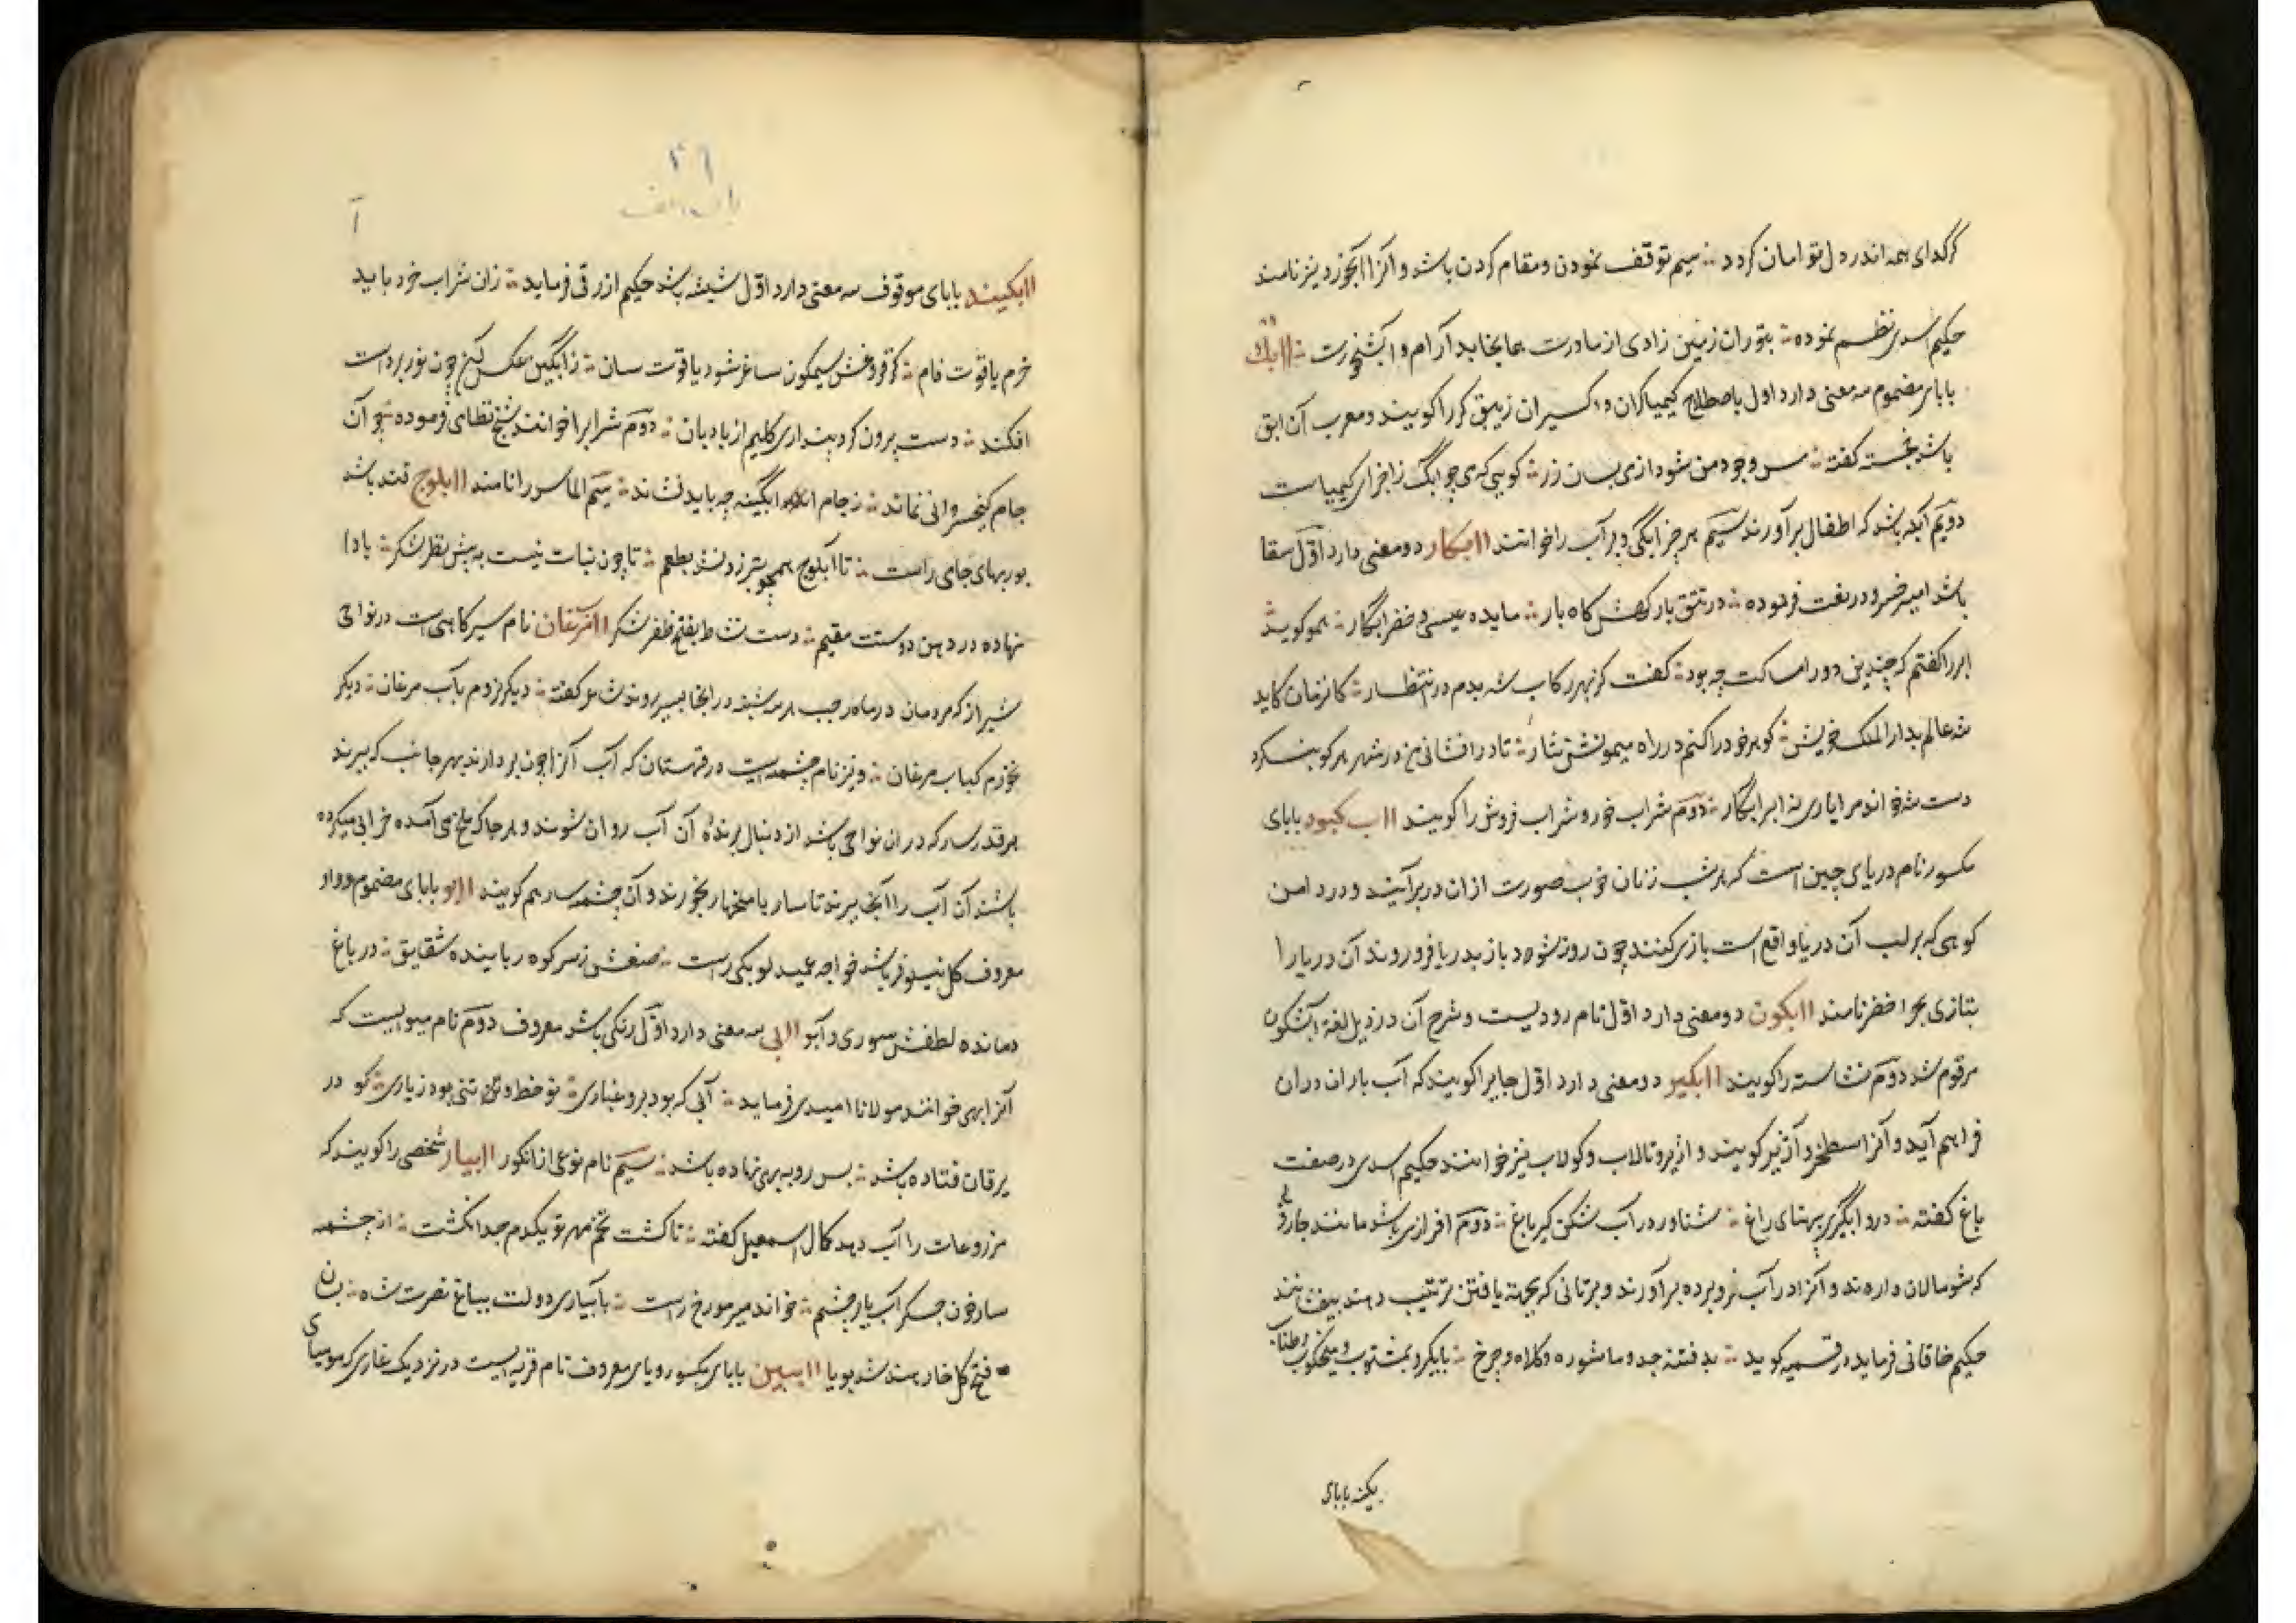 کرکدای همه اندر دل تو امان کردد ∴ سیم توقف نمودن و مقام کردن باشد و آنرا آبخورد نیز نامند
حکیم اسدی نظم نموده ∴ بتوران زمین زادی از مادرت بجا بخایید آرام و ابشخورت ∴ اابک
بابای مضموم سه معنی دارد اول باصطلاح کیمیاکران و اکسیران زیبق کرراکویند و معرب آن ابق
باشد کفته ∴ مس وجود من شود ازی بسان زر ∴ کویی که می چو ابک ز اجزای کیمیاست
دویم آبله باشد که اطفال برآورند سیم هر چیز ابکی و پر آب را خوانند اابکار دو معنی دارد اول سقا
باشد امیر خسرو در نعت فرموده ∴ در تتق بارکهش کاه بار ∴ مایده عیسی و خضر ابکار ∴ همو کوید
ابر را کفتم که چندین دور امساکت چه بود ∴ کفت کز بهر رکاب شه بدم در انتظار ∴ کانزمان کاید
شه عالم بدار الملک خویش ∴ کوهر خود را کنم در راه میمونش نثار ∴ تا در افشانی من در شهر هر کو بنکرد
دست شه خواند مرا یاری نه ابر ابکار ∴ دوم شراب خور و شراب فروش را کویند ااب کبود بابای
مکسور نام دریای چین است که هر شب زنان خوب صورت ازان در برآیند و در دامن
کوهی که بر لب آن دریا واقع است بازی کنند چون روز شود باز بدریا فرو روند آن دریا را
بتازی بحر اخضر نامند اابکون دو معنی دارد اول نام رودیست و شرح آن در ذیل لغة آبسکون
مرقوم شد دوم نشاسته را کویند اابکیر دو معنی دارد اول جایرا کویند که آب باران دران
فراهم آید و آنرا اسطخر و آژیر کویند و اژیر و تالاب و کولاب نیز خوانند حکیم اسدی در صفت
باغ کفته ∴ درو ابکیری بپهنای راغ ∴ شناور در آب شکن کیر باغ ∴ دوم افزاری باشد مانند جاروبی
که شومالان دارند و آنرا در آب فرو برده برآورند و برتانی که بجهة یافتن ترتیب دهند بیفشانند
حکیم خاقانی فرماید در قسمیه کوید ∴ بدفتنه جد و ماشوره و کلاه و چرخ ∴ بابکیر و بمشتوب و میخکوب و طناب
بکینه بابای
۲۶
باب الف
آ
اابکینه بابای موقوف سه معنی دارد اول شیشه باشد حکیم ازرقی فرماید ∴ زان شراب خورد باید
خرم یاقوت فام ∴ کز فروغش سیمکون ساغر شود یاقوت سان ∴ زابکین عکس کنج چون نور بر دست
افکند ∴ دست بیرون کرد پنداری کلیم از بادبان ∴ دوم شراب را خوانند شیخ نظامی فرموده ∴ چو آن
جام کیخسروانی نماند ∴ ز جام ابکینه چه باید نشاند ∴ سیم الماس را نامند اابلوج قند باشد
بوربهای جامی راست ∴ تا ابلوج همچو تبرزد نشد بطعم ∴ تا چون نبات نیست به پیش نظر شکر ∴ بادا
نهاده در دهن دوستت مقیم ∴ دست نشاط بفتح ظفر شکر اامرغان نام سیرکاهی است در نواحی
شیراز که مردمان در ماه رجب هر سه شنبه در انجا بسیر روند شاعر کفته ∴ دیکر نروم بآب مرغان ∴ دیکر
نخورم کباب مرغان ∴ و نیز نام چشمه ایست در قهستان که آب آنرا چون بردارند بهر جانب که ببرند
هر قدر سار که دران نواحی باشد از دنبال برندهٔ آن آب روان شوند و هر جا که ملخ می آمده خرابی میکرده
باشند آن آب را انجا ببرند تا سار یا ملخها را بخورند و آن چشمه سار هم کویند اابو بابای مضموم و واو
معروف کل نیلوفر باشد خواجه عمید لوبکی راست ∴ صنعش ز سر کوه رباینده شقایق ∴ در باغ
دمانده لطفش سوری و آبو اابی سه معنی دارد اول رنکی باشد معروف دوم نام میوه ایست که
آنرا بهی خوانند مولانا امیدی فرماید ∴ آبی که بود برو غباری ∴ نو خط و تن تنی بود زیاری ∴ کو در
یرقان فتاده باشد ∴ پس رو به بهی نهاده باشد ∴ سیم نام نوعی از انکور اابیار شخصی را کویند که
مزروعات را آب دهد کمال اسمعیل کفته ∴ تا کشت تخم مهر تو یکدم جدا نکشت ∴ از چشمه
سار خون جکر آب یار چشم ∴ خواند میر مورخ راست ∴ بآبیاری دولت بباغ نصرت شاه ∴ بسان
فتح کل خار بند شد بویا اابیین بابای مکسور و یای معروف نام قریه ایست در نزدیک غاری که مومیای